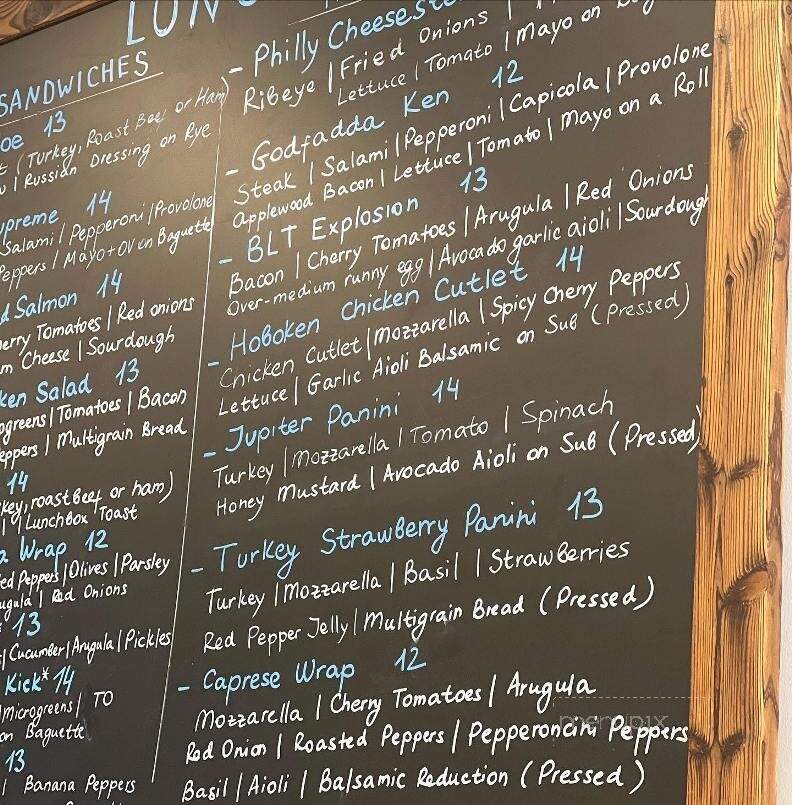 LUN
SANDWICHES
oe 13
(Turkey, Roast Beef or Ham)
Russian Dressing on Rye
preme 14
Salami | Pepperoni | Provolone
Peppers | Mayo + OV on Baguette
d Salmon 14
erry Tomatoes | Red onions
m Cheese | Sourdough
ken Salad 13
ogreens | Tomatoes | Bacon
eppers | Multigrain Bread
14
key, roast Beef or ham)
| Lunchbox Toast
a Wrap 12
ed Peppers | Olives | Parsley
ugula | Red Onions
13
| Cucumber | Arugula | Pickles
Kick* 14
Microgreens | TO
on Baguette
13
| Banana Peppers
- Philly Cheeseste
Ribeye | Fried Onions |
Lettuce | Tomato | Mayo on
- Godfadda Ken 12
Steak | Salami | Pepperoni | Capicola | Provolone
Applewood Bacon | Lettuce | Tomato | Mayo on a Roll
- BLT Explosion 13
Bacon | Cherry Tomatoes | Arugula | Red Onions
Over-medium runny egg | Avocado garlic aioli | Sourdough
- Hoboken Chicken Cutlet 14
Chicken Cutlet | Mozzarella | Spicy Cherry Peppers
Lettuce | Garlic Aioli Balsamic on Sub (Pressed)
- Jupiter Panini 14
Turkey | Mozzarella | Tomato | Spinach
Honey Mustard | Avocado Aioli on Sub (Pressed)
- Turkey Strawberry Panini 13
Turkey | Mozzarella | Basil | Strawberries
Red Pepper Jelly | Multigrain Bread (Pressed)
- Caprese Wrap 12
Mozzarella | Cherry Tomatoes | Arugula
Red Onion | Roasted Peppers | Pepperoncini Peppers
Basil | Aioli | Balsamic Reduction (Pressed)
menupix